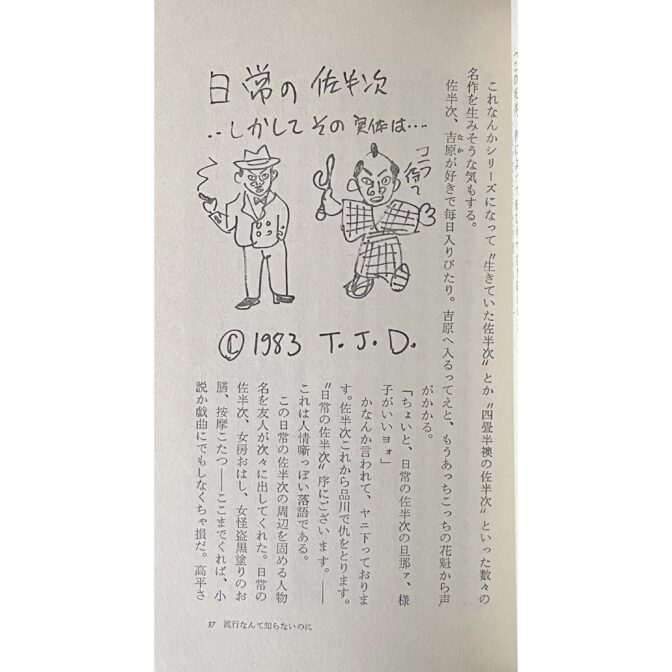 これなんかシリーズになって〝生きていた佐半次〟とか〝四畳半襖の佐半次〟といった数々の
名作を生みそうな気もする。
佐半次、吉原が好きで毎日入りびたり。吉原へ入るってえと、もうあっちこっちの花魁から声
なか
がかかる。
「ちょいと、日常の佐半次の旦那ァ、様
子がいいヨォ」
かなんか言われて、ヤニ下っておりま
す。佐半次これから品川で仇をとります。
〝日常の佐半次〟序にございます。――
これは人情噺っぽい落語である。
この日常の佐半次の周辺を固める人物
名を友人が次々に出してくれた。日常の
佐半次、女房おはし、女怪盗黒塗りのお
膳、按摩こたつ――ここまでくれば、小
説か戯曲にでもしなくちゃ損だ。高平さ
日常の佐半次
‥しかしてその実体は…
待て
©1983 T.J.D.
37 流行なんて知らないのに